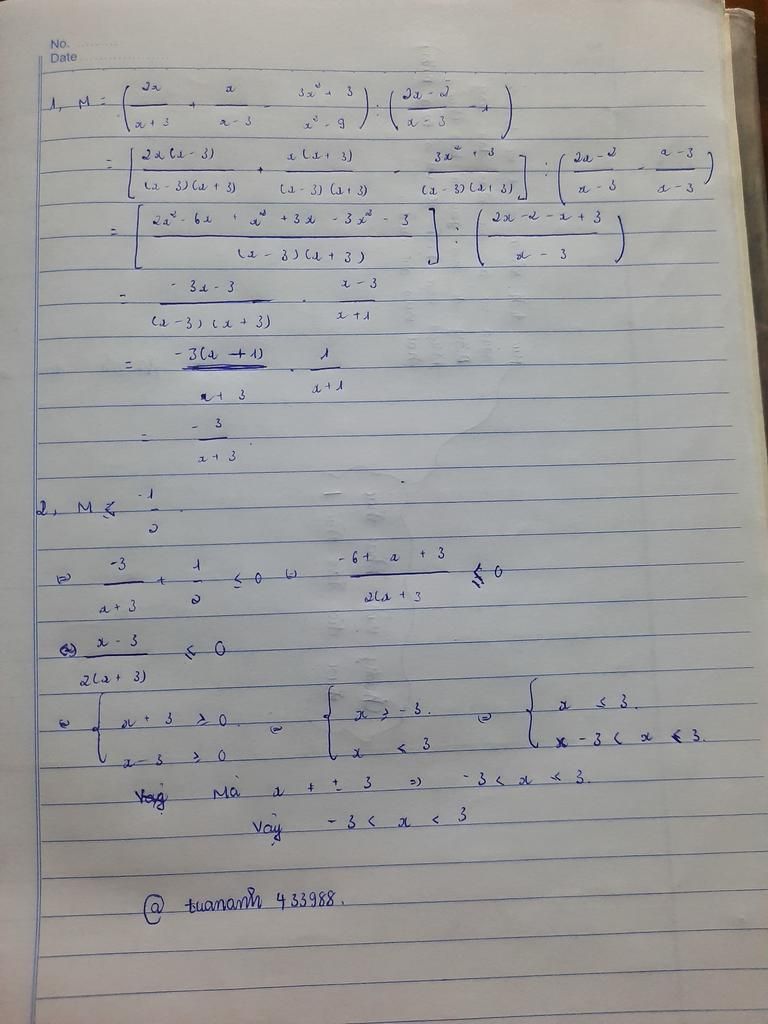 No.
Date
1, M = ( 2x/(x+3) + x/(x-3) - (3x² + 3)/(x² - 9) ) : ( (2x-2)/(x-3) - 1 )
= [ 2x(x-3)/((x-3)(x+3)) + x(x+3)/((x-3)(x+3)) - (3x² + 3)/((x-3)(x+3)) ] : ( (2x-2)/(x-3) - (x-3)/(x-3) )
= [ (2x² - 6x + x² + 3x - 3x² - 3)/((x-3)(x+3)) ] : ( (2x-2-x+3)/(x-3) )
= (-3x-3)/((x-3)(x+3)) . (x-3)/(x+1)
= -3(x+1)/(x+3) . 1/(x+1)
= -3/(x+3)
2, M ≤ -1/2
⇔ -3/(x+3) + 1/2 ≤ 0 ⇔ (-6+x+3)/(2(x+3) ≤ 0
⇔ (x-3)/(2(x+3)) ≤ 0
⇔ { x+3 ≥ 0 ; x-3 ≥ 0 ⇔ { x ≥ -3. ; x ≤ 3 ⇔ { x ≤ 3. ; -3 < x ≤ 3.
Mà x + ± 3 => -3 < x ≤ 3.
Vậy -3 < x < 3
@ tuananh 433988.